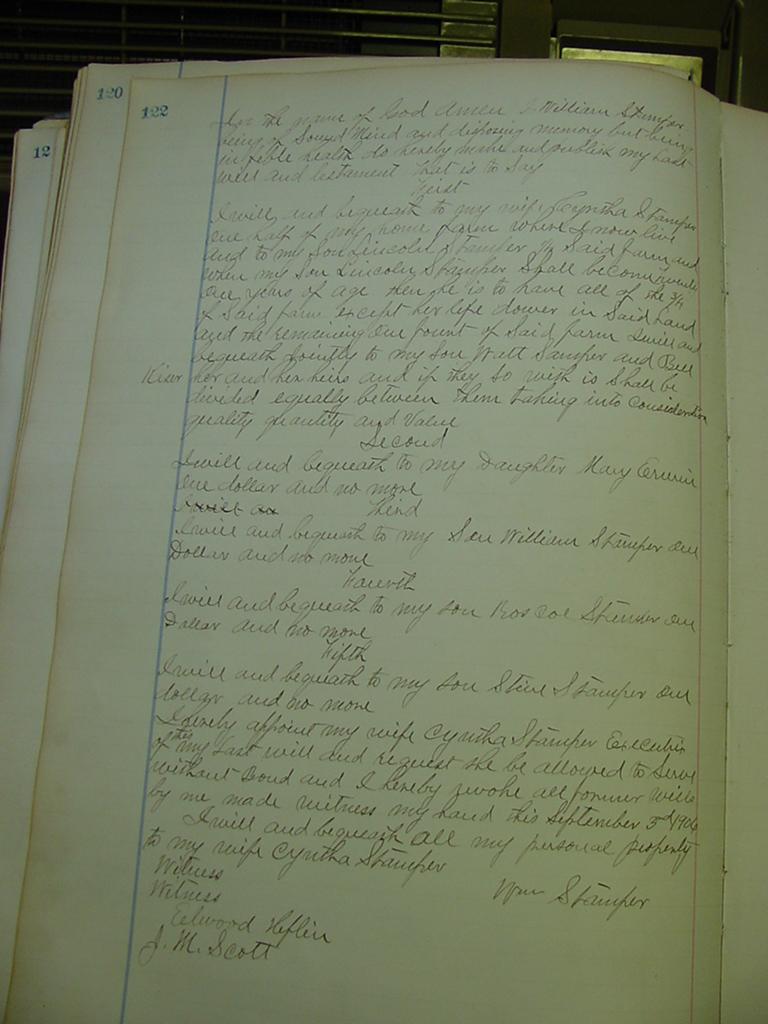 120
122
12
In the name of God Amen I William Stamper
being of Sound Mind and disposing memory but being
in feble health do hereby make and publish my Last
will and testament that is to Say
First
I will and bequeath to my wife Cyntha Stamper
one half of my home farm where I now live
and to my Son Lincoln Stamper 1/4 Said farm and
when my Son Lincoln Stamper Shall become twenty
one years of age then he is to have all of the 3/4
of Said farm except her life dower in Said land
and the remaining one fourt of Said farm I will and
bequeath Jointly to my Son Watt Samper and Bell
Kiser her and her heirs and if they so wish is Shall be
divided equally between them taking into Consideration
quality quantity and Value
Second
I will and bequeath to my Daughter Mary
one dollar and no more
I will an Third
I will and bequeath to my Son William Stamper one
Dollar and no more
Fourth
I will and bequeath to my son Roscoe Stamper one
Dollar and no more
Fifth
I will and bequeath to my son Steve Stamper one
dollar and no more
I hereby appoint my wife Cyntha Stamper Executrix
of this my Last will and request she be allowed to Serve
without Bond and I hereby revoke all former wills
by me made witness my hand this September 1906
I will and bequeath all my personal property
to my wife Cyntha Stamper
Witness Wm Stamper
Witness
Eelwood Heflin
J. M. Scott